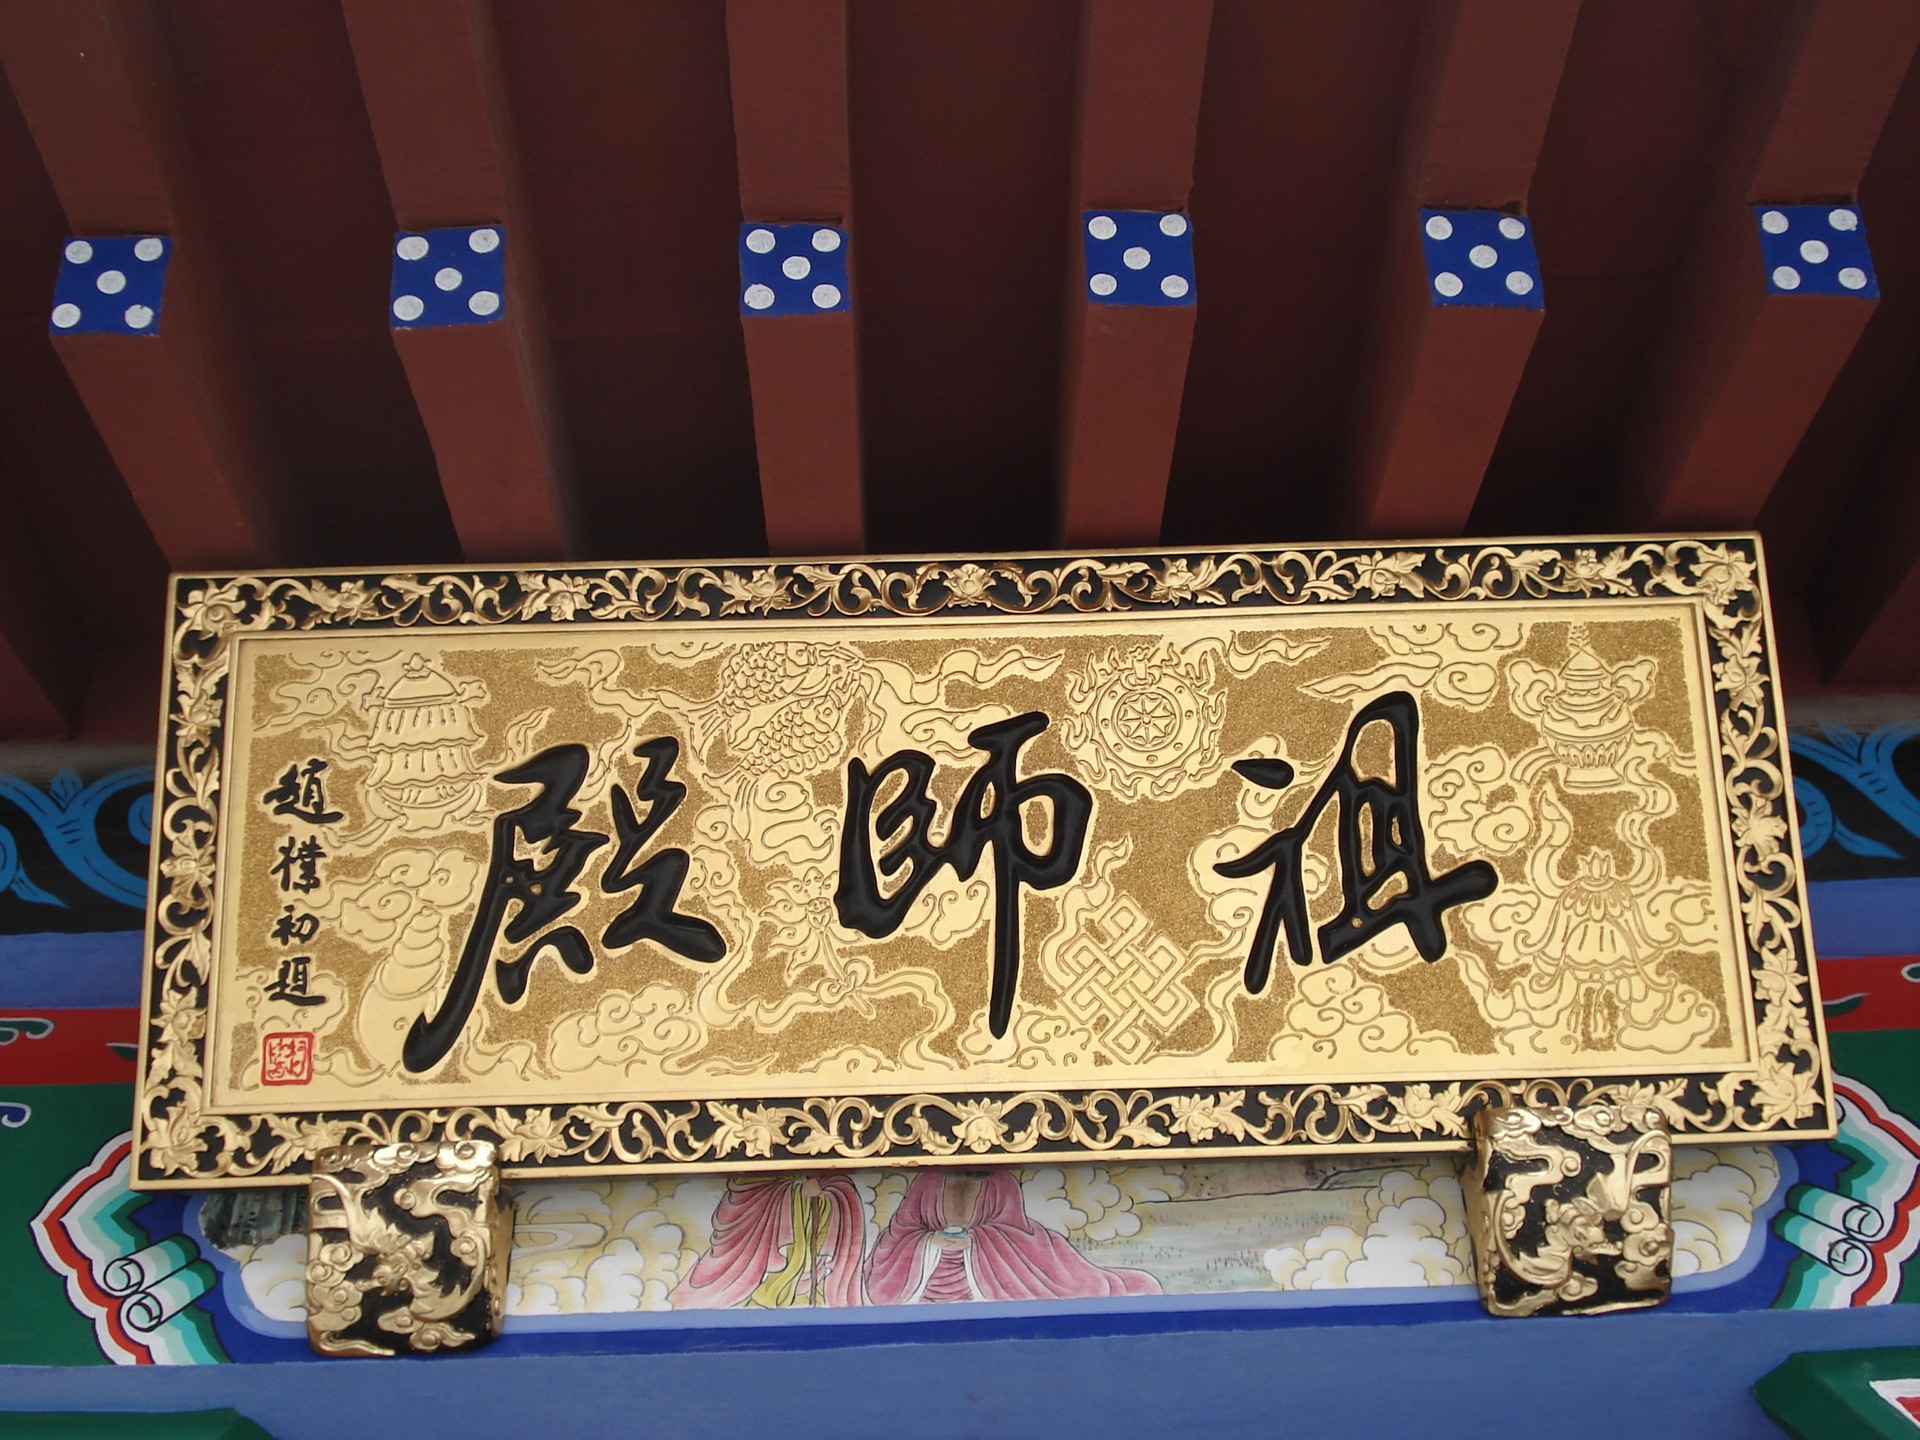 祖師殿
趙樸初題